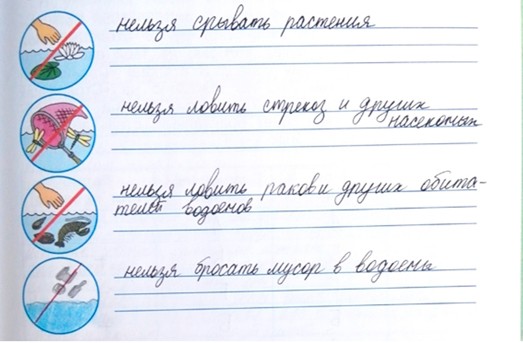 нельзя срывать растения
нельзя ловить стрекоз и других
насекомых
нельзя ловить раков и других обита-
телей водоёмов
нельзя бросать мусор в водоёмы